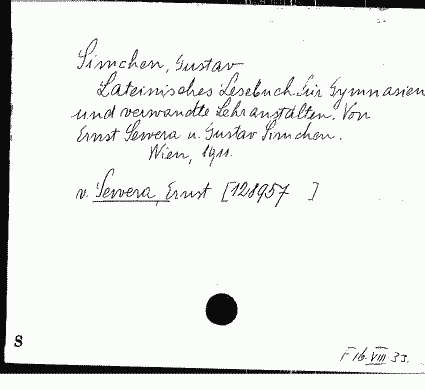 Simchen, Gustav
Lateinisches Lesebuch für Gymnasien
und verwandte Lehranstalten. Von
Ernst Sewera u. Gustav Simchen.
Wien, 1911.
v. Sewera, Ernst [128957 ]
S
F 16.VIII.33.